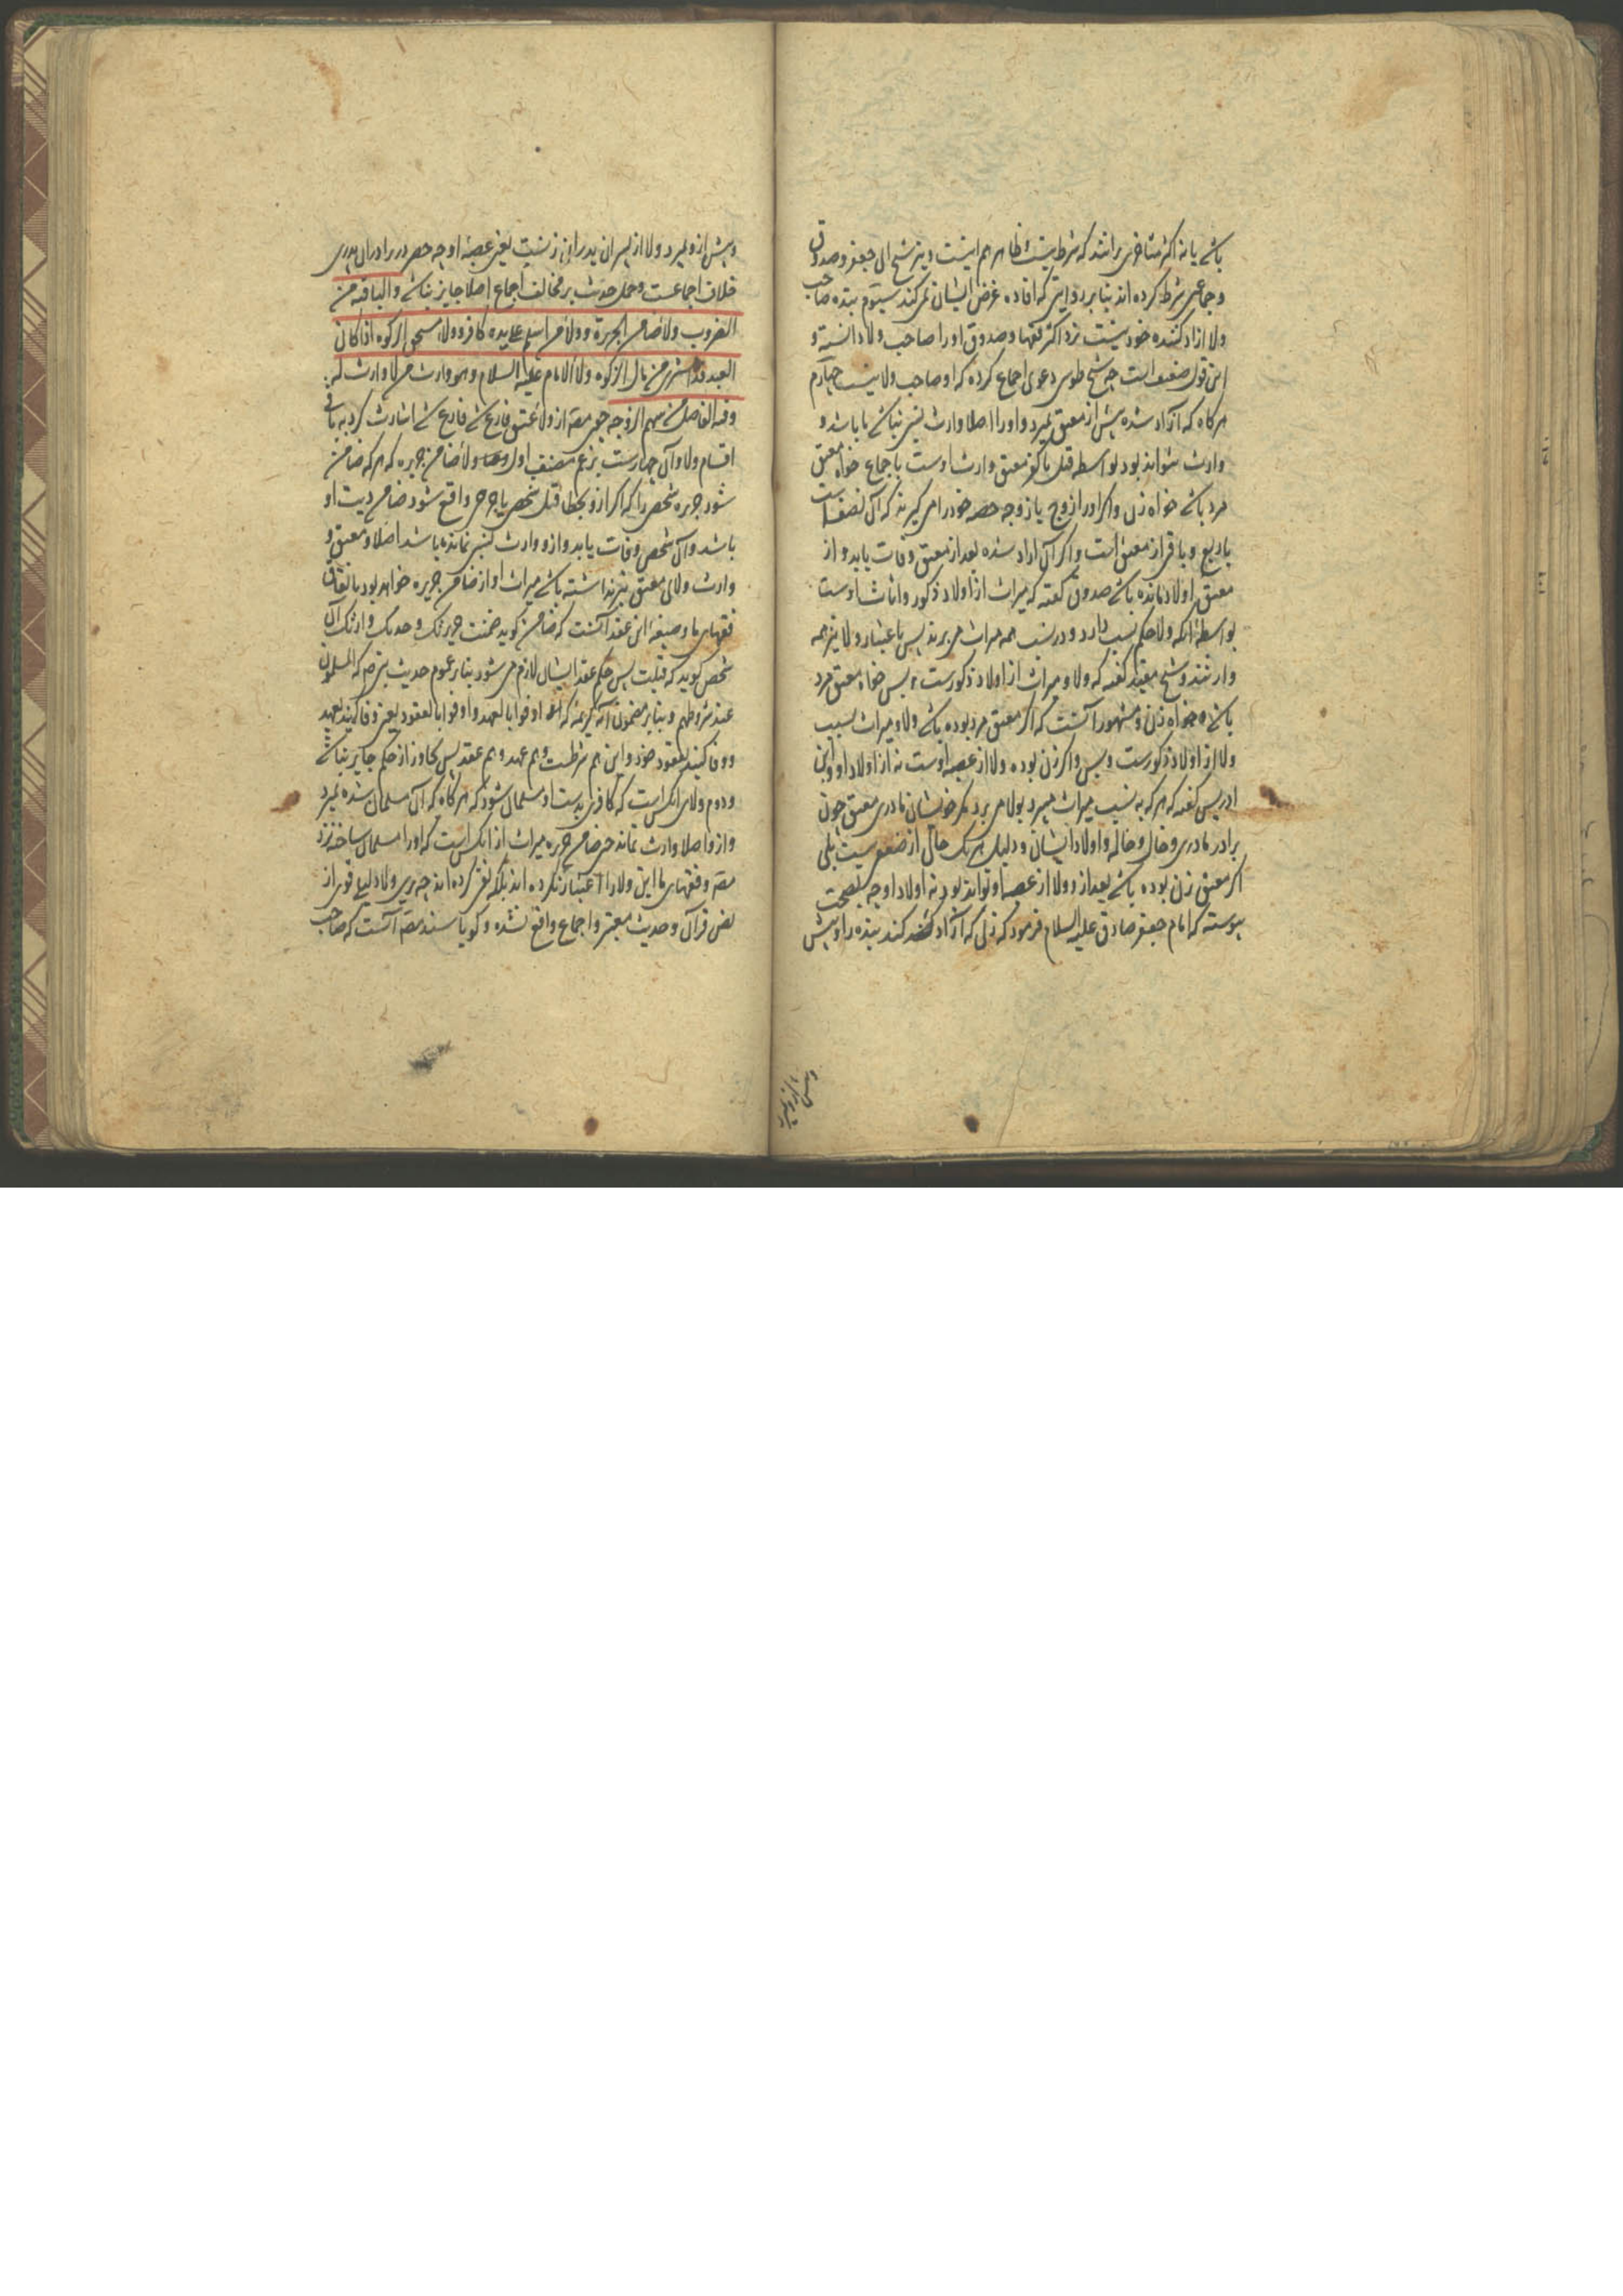 باشد یا نه اکثر متأخرین برانند که شرط نیست ظاهر هم اینست و نیز شیخ ابی جعفر و صدوق
و جماعتی شرط کرده اند بنا بر روایتی که افاده غرض ایشان نمی کند سیوم بنده صاحب
ولا ازاد کننده خود نیست نزد اکثر فقها و صدوق او را صاحب ولا دانسته و
این قول ضعیف است چه شیخ طوسی دعوی اجماع کرده که او صاحب ولا نیست چهارم
هرگاه که آزاد شده پیش از معتق بمیرد و او را اصلا وارث نسبی نباشد یا باشد و
وارث نتواند بود بواسطه قتل یا کفر معتق وارث اوست باجماع خواه معتق
مرد باشد خواه زن و اگر او را زوج یا زوجه حصه خود را می گیرند که آن نصف است
یا ربع و باقی از معتق است و اگر آن ازاد شده بعد از معتق وفات یابد و از
معتق اولاد مانده باشد صدوق گفته که میراث از اولاد ذکور و اناث اوست
بواسطه آنکه ولا حکم نسب دارد و در نسب همه میراث می برند پس باعتبار ولا نیز همه
وارثند و شیخ مفید گفته که ولا و میراث از اولاد ذکورست و بس خواه معتق مرد
باشد و خواه زن و مشهور آنست که اگر معتق مرد بوده باشد ولا و میراث بسبب
ولا از اولاد ذکورست و بس و اگر زن بوده ولا از عصبه اوست نه از اولاد او و ابن
ادریس گفته که هر که به نسب میراث میبرد بولا می برد مگر خویشان مادری معتق چون
برادر مادری و خال و خاله و اولاد ایشان و دلیل هر یک خالی از ضعفی نیست بلی
اگر معتق زن بوده باشد بعد از و ولا از عصبه او تواند بود نه اولاد او چه بصحت
پیوسته که امام جعفر صادق علیه السلام فرمود که زنی که آزاد کند بنده را و پیش
و پیش از و بمیرد ولا از پسران پدر این زنست یعنی عصبه او چه حصر در برادران پدری
خلاف اجماعست و حمل حدیث بر مخالف اجماع اصلا جایز نباشد والباقیه من
الضروب ولاء ضامن الجریرة و ولاء من اسلم علی یده کافر و ولاء مستحق الزکوه اذا کان
العبد قد اشتری من مال الزکوه ولاء الامام علیه السلام وهو وارث من لا وارث له
وفیه الفاضل من سهم الزوجه چون مصه از ولاء عتق فارغ شد اشارت کرد به باقی
اقسام ولا و آن چهارست بزعم مصنف اول ولاء ضامن جریره که هر که ضامن
شود جریره شخصی را که اگر ازو بخطا قتل شخصی یا جرحی واقع شود ضامن دیت او
باشد و آن شخص وفات یابد و ازو وارث نسبی نمانده باشد اصلا و معتق و
وارث ولای معتق نیز نداشته باشد میراث او از ضامن جریره خواهد بود باتفاق
فقهای ما و صیغه این عقد آنست که ضامن گوید ضمنت جریرتک و حدثک وارثک آن
شخص گوید که قبلت پس حکم عقد ایشان لازم می شود بنا بر عموم حدیث پیغمبر که المسلمون
عند شروطهم و بنا بر مضمون آیه کریمه که اوفوا بالعهد و اوفوا بالعقود یعنی وفا کنید بعهد
و وفا کنید بعقود خود و این هم شرطست و هم عهد و هم عقد پس تجاوز از حکم جایز نباشد
و دوم ولای آنکس است که کافری بدست او مسلمان شود که هرگاه که آن مسلمان شده بمیرد
و ازو اصلا وارث نماند حتی ضامن جریره میراث از آنکس است که او را مسلمان ساخته نزد
مصه و فقهای ما این ولا را اعتبار نکرده اند بلکه نفی کرده اند چه بر این ولا دلیلی قوی از
نص قرآن و حدیث معتبر و اجماع واقع نشده و گویا سند مصه آنست که صاحب